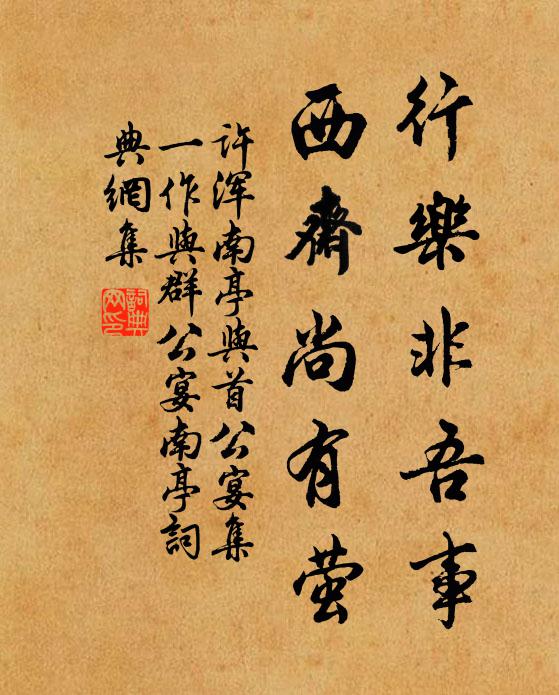 行樂非吾事
西齋尚有螢
許渾南亭與首公宴集
一作與群公宴南亭詞
典網集
詞典
网印